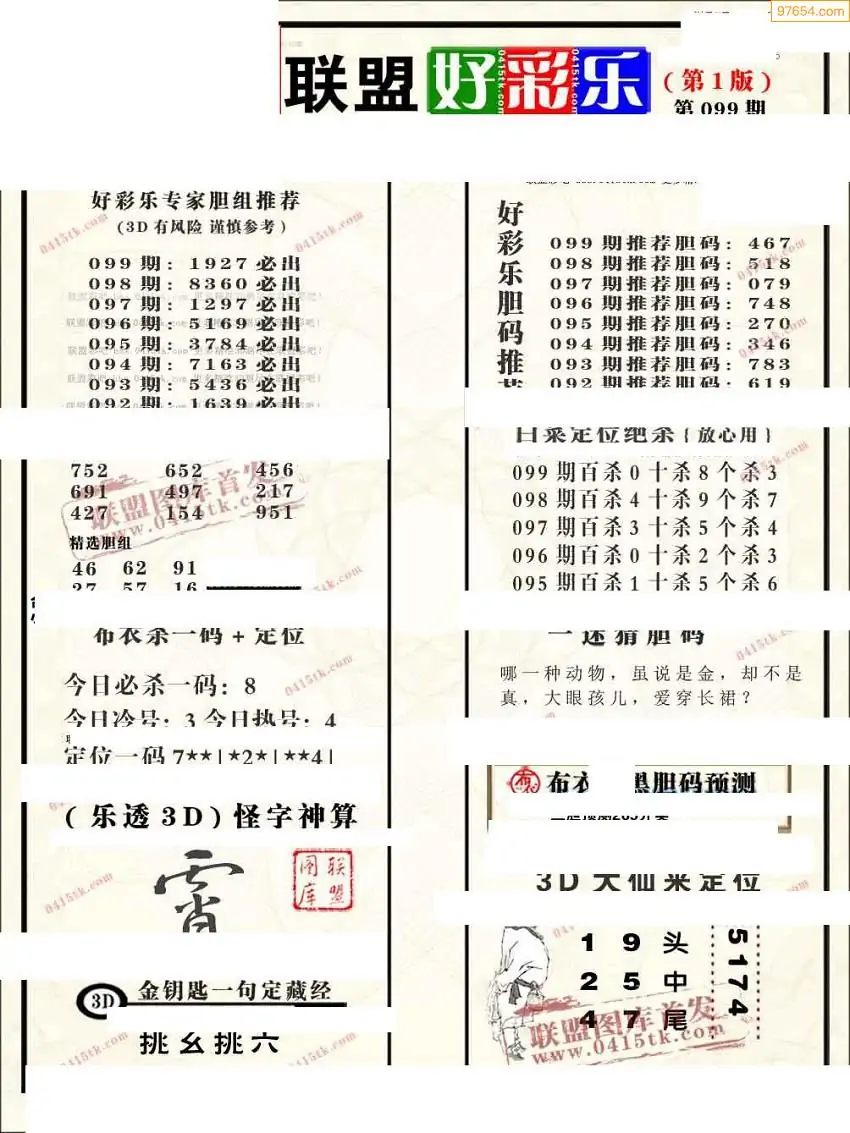 97654.com
联盟 好彩乐 (第1版)
第 099 期
好彩乐专家胆组推荐
(3D 有风险 谨慎参考)
099 期: 1927 必出
098 期: 8360 必出
097 期: 1297 必出
096 期: 5169 必出
095 期: 3784 必出
094 期: 7163 必出
093 期: 5436 必出
092 期: 1639 必出
752 652 456
691 497 217
427 154 951
联盟图库首发
www.0415tk.com
精选胆组
46 62 91
27 57 16
布衣杀一码 + 定位
今日必杀一码: 8
今日冷号: 3 今日热号: 4
定位一码 7★★|★2★|★★4|
(乐透 3D) 怪字神算
联盟图库
3D 金钥匙一句定藏经
挑幺挑六
好彩乐胆码推荐
099 期推荐胆码: 467
098 期推荐胆码: 518
097 期推荐胆码: 079
096 期推荐胆码: 748
095 期推荐胆码: 270
094 期推荐胆码: 346
093 期推荐胆码: 783
092 期推荐胆码: 619
白菜定位绝杀{放心用}
099 期百杀 0 十杀 8 个杀 3
098 期百杀 4 十杀 9 个杀 7
097 期百杀 3 十杀 5 个杀 4
096 期百杀 0 十杀 2 个杀 3
095 期百杀 1 十杀 5 个杀 6
一迷猜胆码
哪一种动物，虽说是金，却不是
真，大眼孩儿，爱穿长裙？
胆码预测
3D 大仙来定位
1 9 头
2 5 中
4 7 尾
5174
联盟图库首发
www.0415tk.com